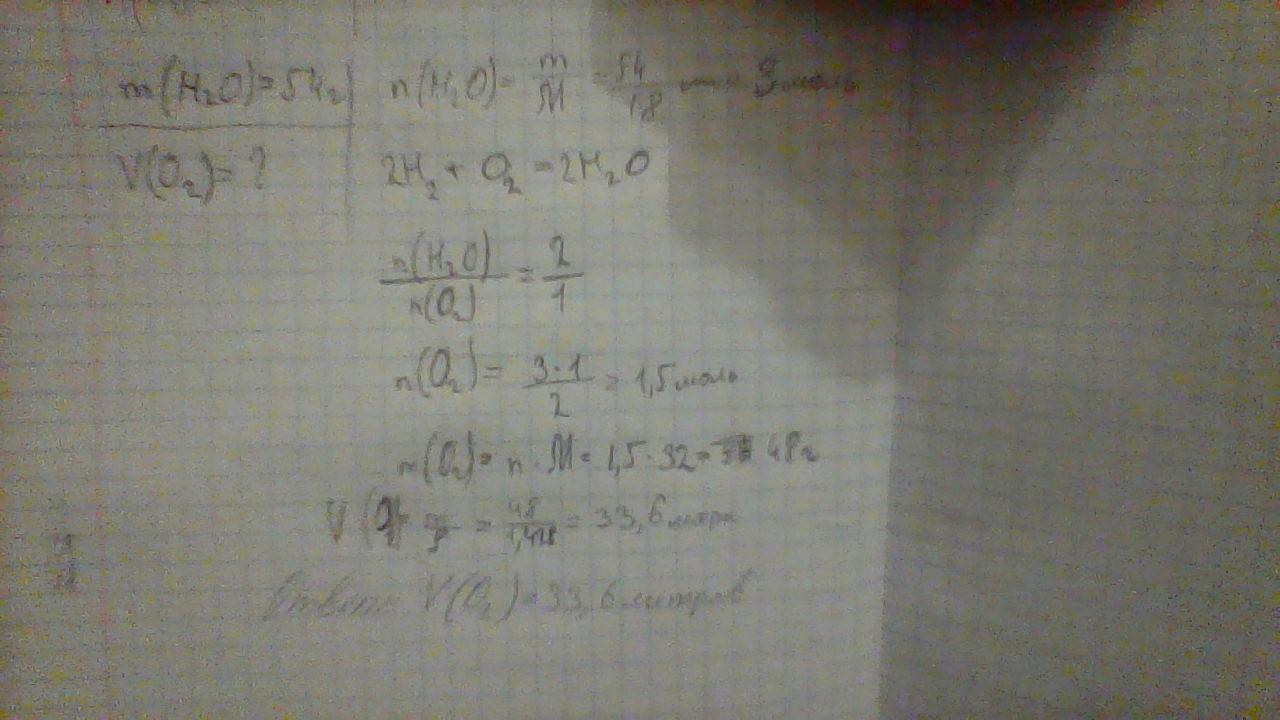 m(H₂O)=54г
n(H₂O)= m/M = 54/18 = 3 моль
V(O₂)= ?
2H₂ + O₂ = 2H₂O
n(H₂O)/n(O₂) = 2/1
n(O₂)= 3·1/2 = 1,5 моль
m(O₂)= n · M = 1,5·32= 48г
V(O₂)= m/ρ = 48/ = 33,6 литра
Ответ: V(O₂)=33,6 литров